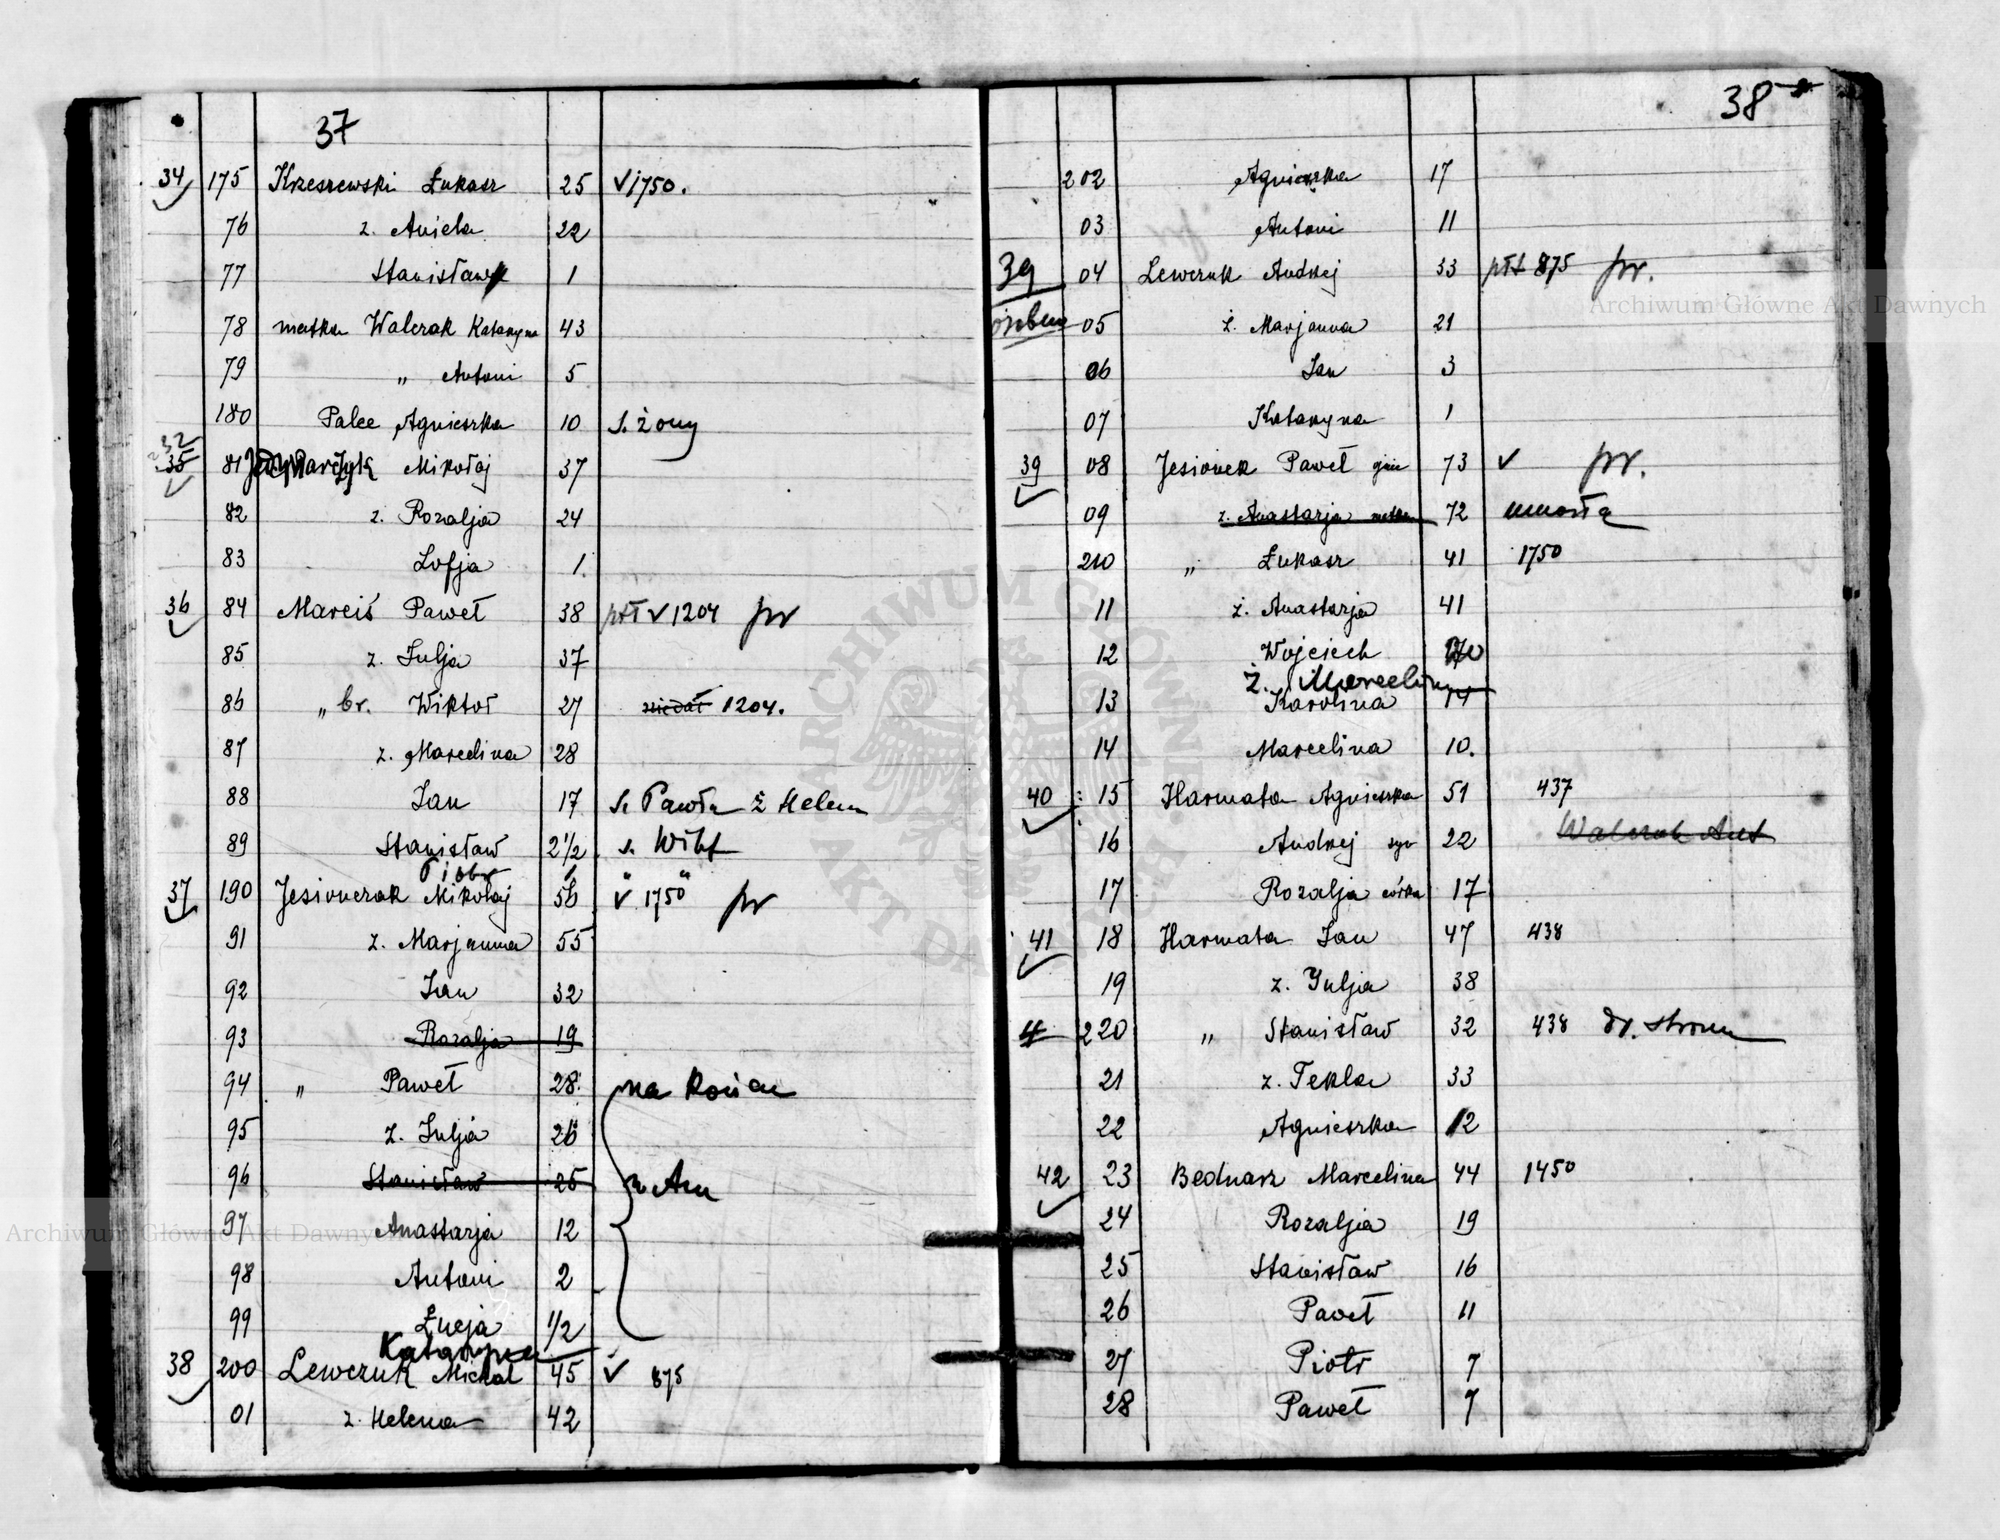 37
34 175 Krzeszewski Łukasz 25 √1750.
76 ż. Aniela 22
77 Stanisław 1
78 matka Walczak Katarzyna 43
79 „ Antoni 5
180 Palec Agnieszka 10 s. żony
32
35 81 Mikołaj 37
82 ż. Rozalja 24
83 Zofja 1
36 84 Marciś Paweł 38 √ 1204 pr
85 ż. Julja 37
86 „ br. Wiktor 27 1204.
87 ż. Marcelina 28
88 Jan 17 s. Pawła ż Helena
89 Stanisław 2 1/2 s. Wikt
Piotr
37 190 Jesionczak Mikołaj 56 √ 1750 pr
91 ż. Marjanna 55
92 Jan 32
93 Rozalja 19
94 „ Paweł 28 na
95 ż. Julja 26
96 Stanisław 25
97 Anastazja 12
98 Antoni 2
99 Łucja 1/2
Katarzyna
38 200 Lewczuk Michał 45 √ 875
01 ż. Helena 42
38
202 Agnieszka 17
03 Antoni 11
39 04 Lewczuk Andrzej 33 875 pr.
05 ż. Marjanna 21
06 Jan 3
07 Katarzyna 1
39 08 Jesionek Paweł 73 √ pr.
09 ż. Anastazja matka 72 umarła
210 „ Łukasz 41 1750
11 ż. Anastazja 41
12 Wojciech
ż. Marcelina
13 Karolina 14
14 Marcelina 10.
40 15 Harmata Agnieszka 51 437
Walczak Ant
16 Andrzej syn 22
17 Rozalja córka 17
41 18 Harmata Jan 47 438
19 ż. Julja 38
220 „ Stanisław 32 438
21 ż. Tekla 33
22 Agnieszka 12
42 23 Bednarz Marcelina 44 1450
24 Rozalja 19
25 Stanisław 16
26 Paweł 11
27 Piotr 7
28 Paweł 7
Archiwum Główne Akt Dawnych
Archiwum Główne Akt Dawnych
ARCHIWUM GŁÓWNE AKT DAWNYCH